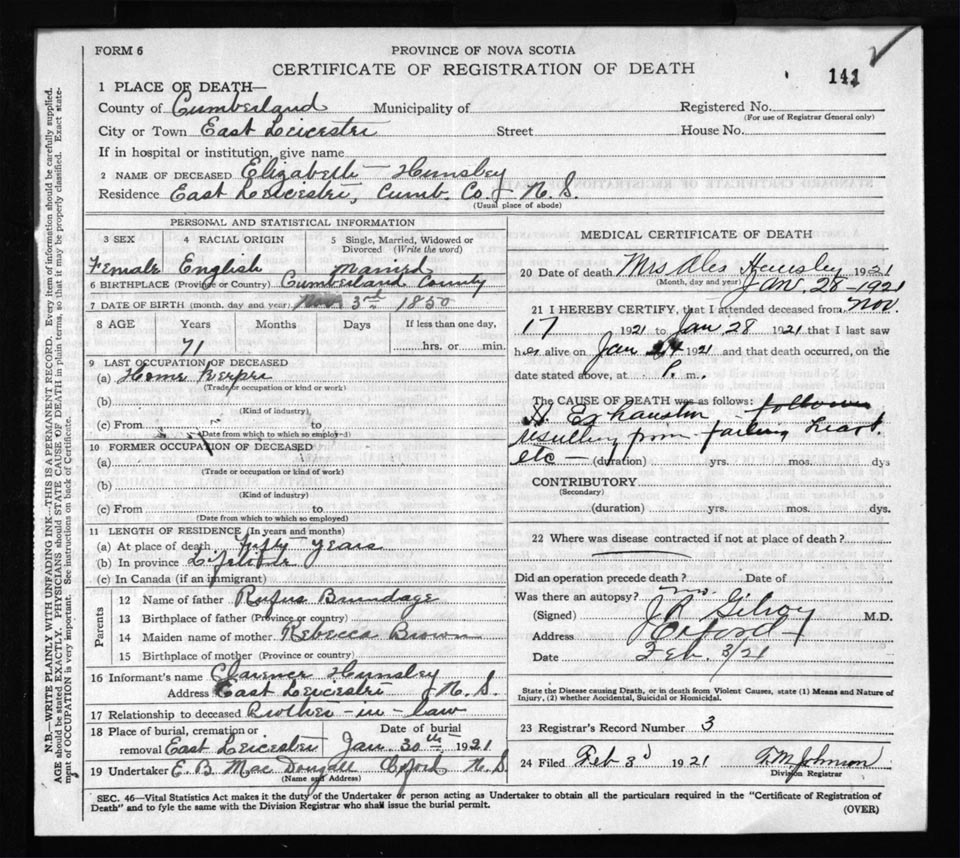 FORM 6
PROVINCE OF NOVA SCOTIA
CERTIFICATE OF REGISTRATION OF DEATH
141
1 PLACE OF DEATH—
County of Cumberland Municipality of Registered No.
(For use of Registrar General only)
City or Town East Leicester Street House No.
If in hospital or institution, give name
2 NAME OF DECEASED Elizabeth Hunsley
Residence East Leicester, Cumb. Co. N. S.
(Usual place of abode)
PERSONAL AND STATISTICAL INFORMATION
3 SEX 4 RACIAL ORIGIN 5 Single, Married, Widowed or Divorced (Write the word)
Female English Married
6 BIRTHPLACE (Province or Country) Cumberland County
7 DATE OF BIRTH (month, day and year) 3rd 1850
8 AGE Years Months Days If less than one day,
71 hrs. or min.
9 LAST OCCUPATION OF DECEASED
(a) Home Keeper
(Trade or occupation or kind or work)
(b)
(Kind of industry)
(c) From to
(Date from which to which so employed)
10 FORMER OCCUPATION OF DECEASED
(a)
(Trade or occupation or kind of work)
(b)
(Kind of industry)
(c) From to
(Date from which to which so employed)
11 LENGTH OF RESIDENCE (In years and months)
(a) At place of death Fifty years
(b) In province Lifetime
(c) In Canada (if an immigrant)
Parents
12 Name of father Rufus Brundage
13 Birthplace of father (Province or country)
14 Maiden name of mother Rebecca Brown
15 Birthplace of mother (Province or country)
16 Informant's name Clarence Hunsley
Address East Leicester N. S.
17 Relationship to deceased Brother-in-law
18 Place of burial, cremation or Date of burial
removal East Leicester Jan 30th 1921
19 Undertaker E. B. MacDougall Oxford N. S.
(Name and Address)
MEDICAL CERTIFICATE OF DEATH
20 Date of death Mrs Alex Hunsley 1921
(Month, day and year) Jan. 28-1921
21 I HEREBY CERTIFY, that I attended deceased from Nov.
17 1921 to Jan 28 1921 that I last saw
her alive on Jan 1921 and that death occurred, on the
date stated above, at P. m.
The CAUSE OF DEATH was as follows: follows
Exhaustion
resulting from failing heart.
etc — (duration) yrs. mos. dys
CONTRIBUTORY
(Secondary)
(duration) yrs. mos. dys.
22 Where was disease contracted if not at place of death?
Did an operation precede death? Date of
Was there an autopsy? no.
(Signed) J. R. Gilroy M.D.
Address Oxford
Date Feb. 3/21
State the Disease causing Death, or in death from Violent Causes, state (1) Means and Nature of
Injury, (2) whether Accidental, Suicidal or Homicidal.
23 Registrar's Record Number 3
24 Filed Feb 3d 1921 T. M. Johnson
Division Registrar
SEC. 46—Vital Statistics Act makes it the duty of the Undertaker or person acting as Undertaker to obtain all the particulars required in the "Certificate of Registration of
Death" and to fyle the same with the Division Registrar who shall issue the burial permit.
(OVER)
N.B.—WRITE PLAINLY WITH UNFADING INK—THIS IS A PERMANENT RECORD. Every item of information should be carefully supplied.
AGE should be stated EXACTLY. PHYSICIANS should STATE CAUSE OF DEATH in plain terms, so that it may be properly classified. Exact state-
ment of OCCUPATION is very important. See instructions on back of Certificate.